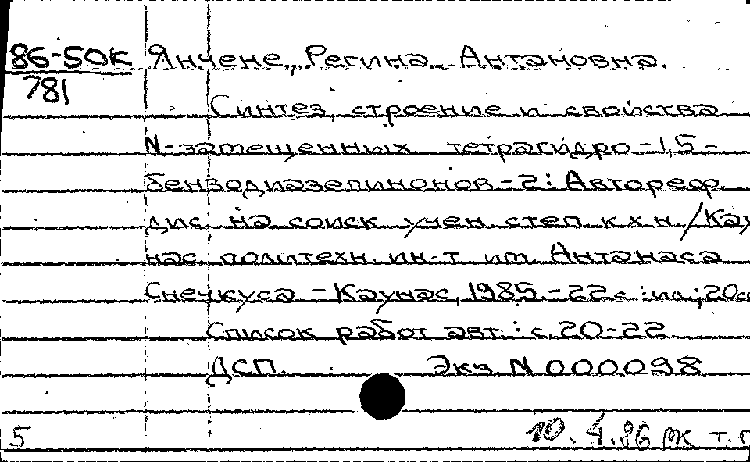 86-50К Янчене, Регина Антановна.
781
Синтез, строение и свойства
N-замещенных тетрагидро-1,5-
бензодиазепинонов-2: Автореф.
дис. на соиск. учен. степ. к.х.н. /Кау
нас. политехн. ин-т им. Антанаса
Снечкуса. -Каунас, 1985. -22 с.: ил.; 20с
Список работ авт.: с. 20-22.
ДСП. Экз. N 000098
5 10.4.86 РК т.г